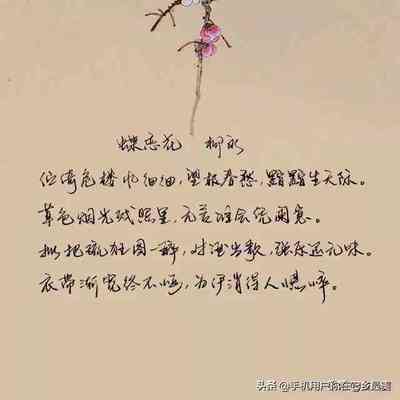 蝶恋花 柳永
伫倚危楼风细细，望极春愁，黯黯生天际。
草色烟光残照里，无言谁会凭阑意。
拟把疏狂图一醉，对酒当歌，强乐还无味。
衣带渐宽终不悔，为伊消得人憔悴。
头条 @手机用户